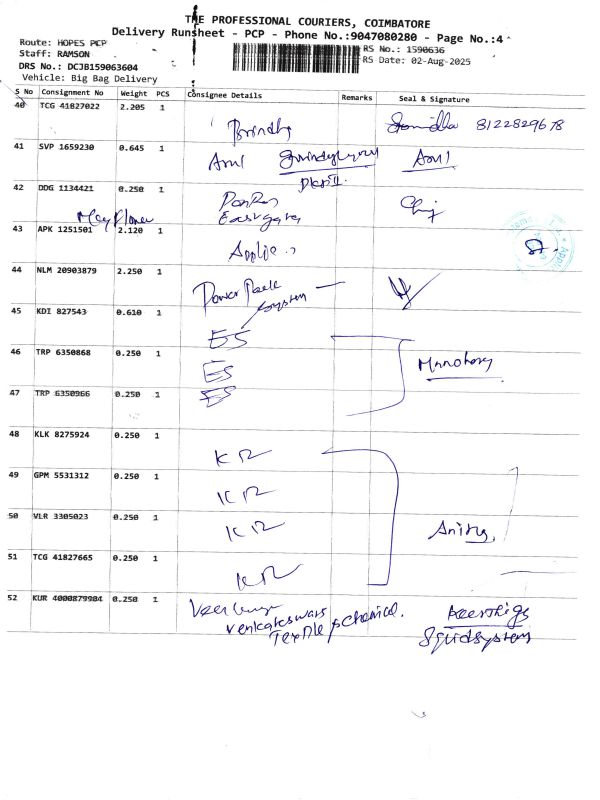 THE PROFESSIONAL COURIERS, COIMBATORE
Delivery Runsheet - PCP - Phone No.:9047080280 - Page No.:4
Route: HOPES PCP
Staff: RAMSON
DRS No.: DCJB159063604
Vehicle: Big Bag Delivery
RS No.: 1590636
RS Date: 02-Aug-2025
S No Consignment No Weight PCS Consignee Details Remarks Seal & Signature
40 TCG 41827022 2.205 1 8122829678
41 SVP 1659230 0.645 1 Arul Arul
42 DDG 1134421 0.250 1
Eastgate
43 APK 1251501 2.120 1
44 NLM 20903879 2.250 1 Power Pack
System
45 KDI 827543 0.610 1 ES
46 TRP 6350868 0.250 1 ES
47 TRP 6350966 0.250 1 ES
48 KLK 8275924 0.250 1 KR
49 GPM 5531312 0.250 1 KR
50 VLR 3305023 0.250 1 KR
51 TCG 41827665 0.250 1 KR
52 KUR 4000879904 0.250 1
Textile chemical.